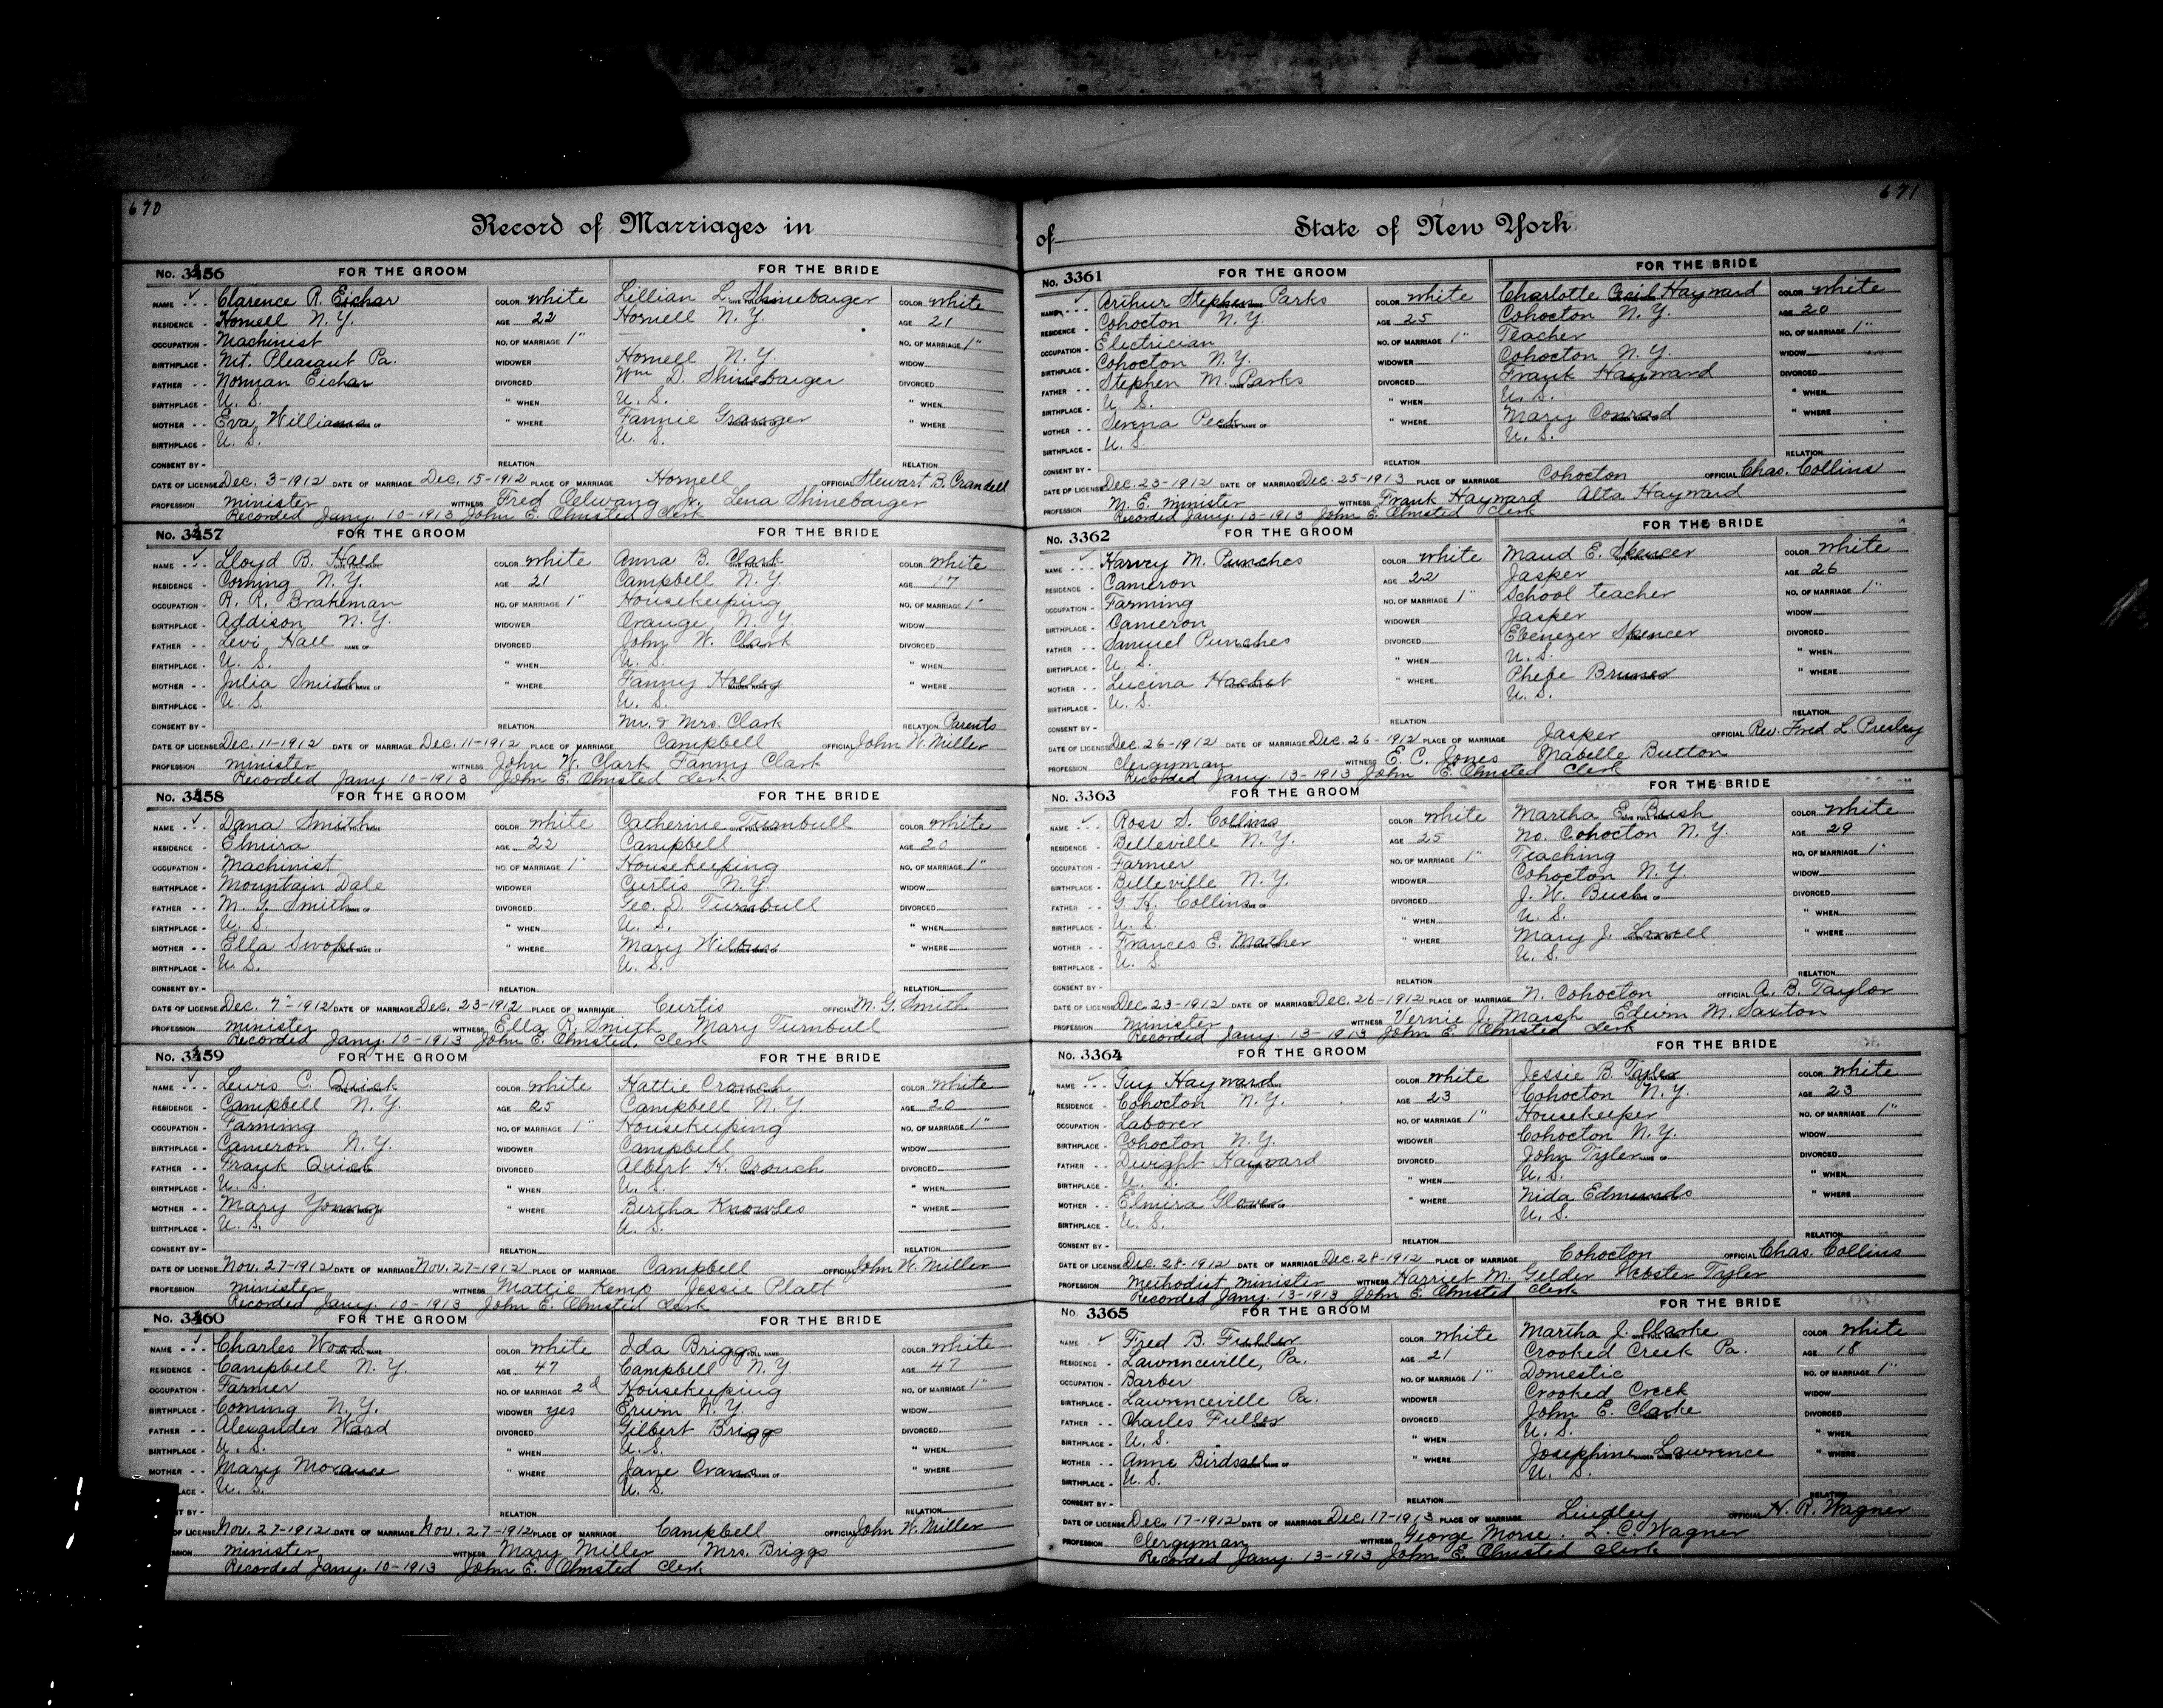 670
Record of Marriages in
No. 3356 FOR THE GROOM FOR THE BRIDE
NAME Clarence R. Eichar COLOR White Lillian L. Shinebarger COLOR White
RESIDENCE Hornell N. Y. AGE 22 Hornell N. Y. AGE 21
OCCUPATION Machinist NO. OF MARRIAGE 1" NO. OF MARRIAGE 1"
BIRTHPLACE Mt. Pleasant Pa. WIDOWER Hornell N. Y. WIDOW
FATHER Norman Eichar DIVORCED Wm D. Shinebarger DIVORCED
BIRTHPLACE U. S. " WHEN U. S. " WHEN
MOTHER Eva Williams " WHERE Fannie Granger " WHERE
BIRTHPLACE U. S. U. S.
CONSENT BY RELATION RELATION
DATE OF LICENSE Dec. 3-1912 DATE OF MARRIAGE Dec. 15-1912 PLACE OF MARRIAGE Hornell OFFICIAL Stewart B. Crandell
PROFESSION minister WITNESS Fred Oelwang Jr. Lena Shinebarger
Recorded Jany. 10-1913 John E. Olmsted Clerk
No. 3357 FOR THE GROOM FOR THE BRIDE
NAME Lloyd B. Hall COLOR White Anna B. Clark COLOR White
RESIDENCE Corning N. Y. AGE 21 Campbell N. Y. AGE 17
OCCUPATION R. R. Brakeman NO. OF MARRIAGE 1" Housekeeping NO. OF MARRIAGE 1"
BIRTHPLACE Addison N. Y. WIDOWER Orange N. Y. WIDOW
FATHER Levi Hall DIVORCED John W. Clark DIVORCED
BIRTHPLACE U. S. " WHEN U. S. " WHEN
MOTHER Julia Smith " WHERE Fanny Holley " WHERE
BIRTHPLACE U. S. U. S.
CONSENT BY RELATION Mr. & Mrs. Clark RELATION Parents
DATE OF LICENSE Dec. 11-1912 DATE OF MARRIAGE Dec. 11-1912 PLACE OF MARRIAGE Campbell OFFICIAL John W. Miller
PROFESSION minister WITNESS John W. Clark Fanny Clark
Recorded Jany. 10-1913 John E. Olmsted Clerk
No. 3358 FOR THE GROOM FOR THE BRIDE
NAME Dana Smith COLOR White Catherine Turnbull COLOR White
RESIDENCE Elmira AGE 22 Campbell AGE 20
OCCUPATION Machinist NO. OF MARRIAGE 1" Housekeeping NO. OF MARRIAGE 1"
BIRTHPLACE Mountain Dale WIDOWER Curtis N. Y. WIDOW
FATHER M. G. Smith DIVORCED Geo. D. Turnbull DIVORCED
BIRTHPLACE U. S. " WHEN U. S. " WHEN
MOTHER Ella Swope " WHERE Mary Wilbur " WHERE
BIRTHPLACE U. S. U. S.
CONSENT BY RELATION RELATION
DATE OF LICENSE Dec. 7"-1912 DATE OF MARRIAGE Dec. 23-1912 PLACE OF MARRIAGE Curtis OFFICIAL M. G. Smith
PROFESSION minister WITNESS Ella R. Smith Mary Turnbull
Recorded Jany. 10-1913 John E. Olmsted, Clerk
No. 3359 FOR THE GROOM FOR THE BRIDE
NAME Lewis C. Quick COLOR White Hattie Crouch COLOR White
RESIDENCE Campbell N. Y. AGE 25 Campbell N. Y. AGE 20
OCCUPATION Farming NO. OF MARRIAGE 1" Housekeeping NO. OF MARRIAGE 1"
BIRTHPLACE Cameron N. Y. WIDOWER Campbell WIDOW
FATHER Frank Quick DIVORCED Albert H. Crouch DIVORCED
BIRTHPLACE U. S. " WHEN U. S. " WHEN
MOTHER Mary Young " WHERE Bertha Knowles " WHERE
BIRTHPLACE U. S. U. S.
CONSENT BY RELATION RELATION
DATE OF LICENSE Nov. 27-1912 DATE OF MARRIAGE Nov. 27-1912 PLACE OF MARRIAGE Campbell OFFICIAL John W. Miller
PROFESSION minister WITNESS Mattie Kemp Jessie Platt
Recorded Jany. 10-1913 John E. Olmsted Clerk
No. 3360 FOR THE GROOM FOR THE BRIDE
NAME Charles Wood COLOR White Ida Briggs COLOR White
RESIDENCE Campbell N. Y. AGE 47 Campbell N. Y. AGE 47
OCCUPATION Farmer NO. OF MARRIAGE 2d Housekeeping NO. OF MARRIAGE 1"
BIRTHPLACE Corning N. Y. WIDOWER yes Erwin N. Y. WIDOW
FATHER Alexander Wood DIVORCED Gilbert Briggs DIVORCED
BIRTHPLACE U. S. " WHEN U. S. " WHEN
MOTHER Mary " WHERE Jane Evans " WHERE
LACE U. S. U. S.
NT BY RELATION RELATION
OF LICENSE Nov. 27-1912 DATE OF MARRIAGE Nov. 27-1912 PLACE OF MARRIAGE Campbell OFFICIAL John W. Miller
SSION minister WITNESS Mary Miller Mrs. Briggs
Recorded Jany. 10-1913 John E. Olmsted Clerk
671
of State of New York
No. 3361 FOR THE GROOM FOR THE BRIDE
NAME Arthur Stephen Parks COLOR White Charlotte Cecil Hayward COLOR White
RESIDENCE Cohocton N. Y. AGE 25 Cohocton N. Y. AGE 20
OCCUPATION Electrician NO. OF MARRIAGE 1" Teacher NO. OF MARRIAGE 1"
BIRTHPLACE Cohocton N. Y. WIDOWER Cohocton N. Y. WIDOW
FATHER Stephen M. Parks DIVORCED Frank Hayward DIVORCED
BIRTHPLACE U. S. " WHEN U. S. " WHEN
MOTHER Serena Peck " WHERE Mary Conrad " WHERE
BIRTHPLACE U. S. U. S.
CONSENT BY RELATION RELATION
DATE OF LICENSE Dec. 23-1912 DATE OF MARRIAGE Dec. 25-1913 PLACE OF MARRIAGE Cohocton OFFICIAL Chas. Collins
PROFESSION M. E. minister WITNESS Frank Hayward Alta Hayward
Recorded Jany. 13-1913 John E. Olmsted Clerk
No. 3362 FOR THE GROOM FOR THE BRIDE
NAME Harvey M. Punches COLOR White Maud E. Spencer COLOR White
RESIDENCE Cameron AGE 22 Jasper AGE 26
OCCUPATION Farming NO. OF MARRIAGE 1" School teacher NO. OF MARRIAGE 1"
BIRTHPLACE Cameron WIDOWER Jasper WIDOW
FATHER Samuel Punches DIVORCED Ebenezer Spencer DIVORCED
BIRTHPLACE U. S. " WHEN U. S. " WHEN
MOTHER Lucina Hachet " WHERE Phebe " WHERE
BIRTHPLACE U. S. U. S.
CONSENT BY RELATION RELATION
DATE OF LICENSE Dec. 26-1912 DATE OF MARRIAGE Dec. 26-1912 PLACE OF MARRIAGE Jasper OFFICIAL Rev. Fred L Presley
PROFESSION Clergyman WITNESS E. C. Jones Mabelle Button
Recorded Jany. 13-1913 John E. Olmsted Clerk
No. 3363 FOR THE GROOM FOR THE BRIDE
NAME Ross S. Collins COLOR White Martha E. Bush COLOR White
RESIDENCE Belleville N. Y. AGE 25 No. Cohocton N. Y. AGE 29
OCCUPATION Farmer NO. OF MARRIAGE 1" Teaching NO. OF MARRIAGE 1"
BIRTHPLACE Belleville N. Y. WIDOWER Cohocton N. Y. WIDOW
FATHER G. H. Collins DIVORCED J. W. Bush DIVORCED
BIRTHPLACE U. S. " WHEN U. S. " WHEN
MOTHER Frances E. Mather " WHERE Mary J. Lowell " WHERE
BIRTHPLACE U. S. U. S.
CONSENT BY RELATION RELATION
DATE OF LICENSE Dec. 23-1912 DATE OF MARRIAGE Dec. 26-1912 PLACE OF MARRIAGE N. Cohocton OFFICIAL A. B. Taylor
PROFESSION minister WITNESS Vernie J. Marsh Edwin M. Saxton
Recorded Jany. 13-1913 John E. Olmsted Clerk
No. 3364 FOR THE GROOM FOR THE BRIDE
NAME Guy Hayward COLOR White Jessie B. Tyler COLOR White
RESIDENCE Cohocton N. Y. AGE 23 Cohocton N. Y. AGE 23
OCCUPATION Laborer NO. OF MARRIAGE 1" Housekeeper NO. OF MARRIAGE 1"
BIRTHPLACE Cohocton N. Y. WIDOWER Cohocton N. Y. WIDOW
FATHER Dwight Hayward DIVORCED John Tyler DIVORCED
BIRTHPLACE U. S. " WHEN U. S. " WHEN
MOTHER Elmira Glover " WHERE Nida Edmunds " WHERE
BIRTHPLACE U. S. U. S.
CONSENT BY RELATION RELATION
DATE OF LICENSE Dec. 28-1912 DATE OF MARRIAGE Dec. 28-1912 PLACE OF MARRIAGE Cohocton OFFICIAL Chas. Collins
PROFESSION Methodist minister WITNESS Harriet M. Gelder Webster Tyler
Recorded Jany. 13-1913 John E. Olmsted Clerk
No. 3365 FOR THE GROOM FOR THE BRIDE
NAME Fred B. Fuller COLOR White Martha J. Clarke COLOR White
RESIDENCE Lawrenceville, Pa. AGE 21 Crooked Creek Pa. AGE 18
OCCUPATION Barber NO. OF MARRIAGE 1" Domestic NO. OF MARRIAGE 1"
BIRTHPLACE Lawrenceville Pa. WIDOWER Crooked Creek WIDOW
FATHER Charles Fuller DIVORCED John E. Clarke DIVORCED
BIRTHPLACE U. S. " WHEN U. S. " WHEN
MOTHER Anna Birdsall " WHERE Josephine Lawrence " WHERE
BIRTHPLACE U. S. U. S.
CONSENT BY RELATION RELATION
DATE OF LICENSE Dec. 17-1912 DATE OF MARRIAGE Dec. 17-1913 PLACE OF MARRIAGE Lindley OFFICIAL H. R. Wagner
PROFESSION Clergyman WITNESS George Morse. L. C. Wagner
Recorded Jany. 13-1913 John E. Olmsted Clerk